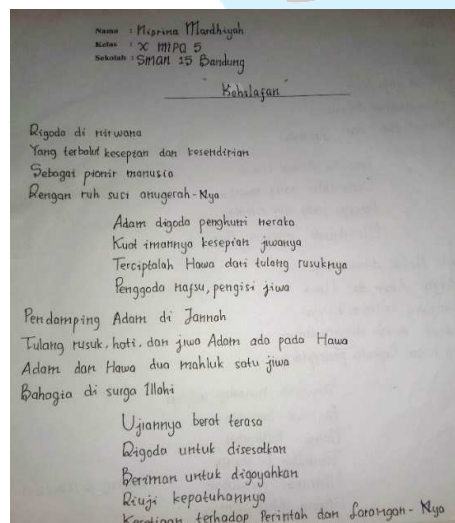 Nama : Nisrina Mardhiyah
Kelas : X MIPA 5
Sekolah : SMAN 15 Bandung
Kehilafan
Digoda di nirwana
Yang terbalut kesepian dan kesendirian
Sebagai pionir manusia
Dengan ruh suci anugerah-Nya
Adam digoda penghuni neraka
Kuat imannya kesepian jiwanya
Terciptalah Hawa dari tulang rusuknya
Penggoda nafsu, pengisi jiwa
Pendamping Adam di Jannah
Tulang rusuk, hati, dan jiwa Adam ada pada Hawa
Adam dan Hawa dua mahluk satu jiwa
Bahagia di surga Illahi
Ujiannya berat terasa
Digoda untuk disesatkan
Beriman untuk digoyahkan
Diuji kepatuhannya
terhadap Perintah dan Larangan-Nya